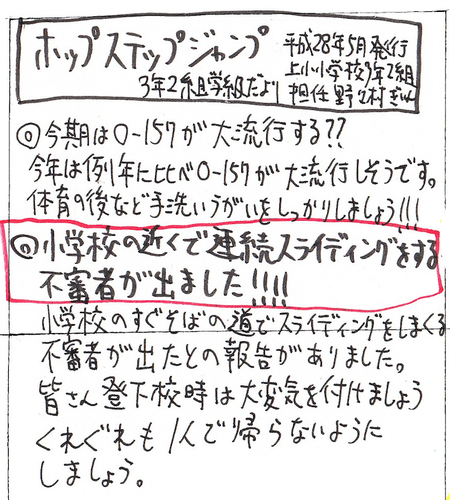 ホップステップジャンプ
3年2組学級だより
平成28年5月発行
上小小学校3年2組
担任 野々村ぎいん
◎今期はO-157が大流行する??
今年は例年に比べO-157が大流行しそうです。
体育の後など手洗いうがいをしっかりしましょう!!!
◎小学校の近くで連続スライディングをする
不審者が出ました!!!!
小学校のすぐそばの道でスライディングをしまくる
不審者が出たとの報告がありました。
皆さん登下校時は大変気を付けましょう
くれぐれも1人で帰らないように
しましょう。